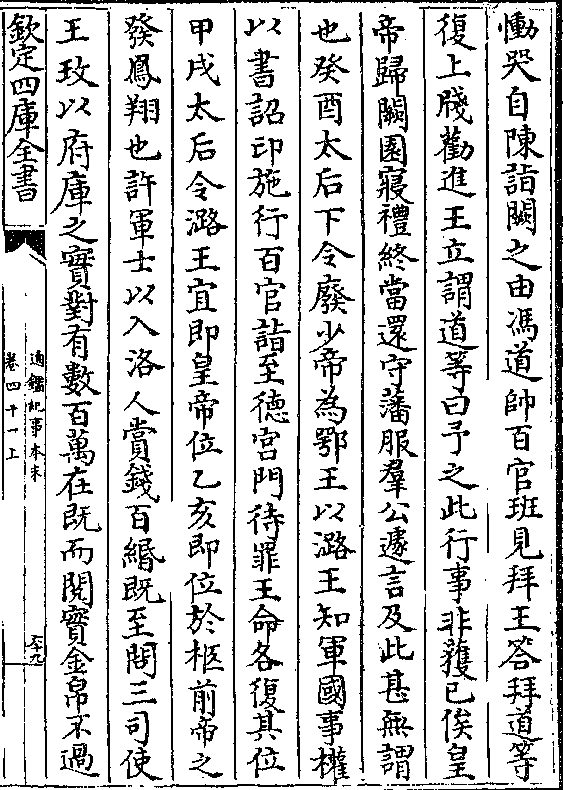 慟哭自陳詣闕之由馮道帥百官班見拜王答拜道等
復上牋勸進王立謂道等曰予之此行事非獲已俟皇
帝歸闕園寢禮終當還守藩服羣公遽言及此甚無謂
也癸酉太后下令廢少帝為鄂王以潞王知軍國事權
以書詔印施行百官詣至德宮門待罪王命各復其位
甲戌太后令潞王宜即皇帝位乙亥即位於柩前帝之
發鳳翔也許軍士以入洛人賞錢百緡既至問三司使
王玫以府庫之實對有數百萬在既而閱實金帛不過
欽定四庫全書
通鑑紀事本末
卷四十一上
六十九